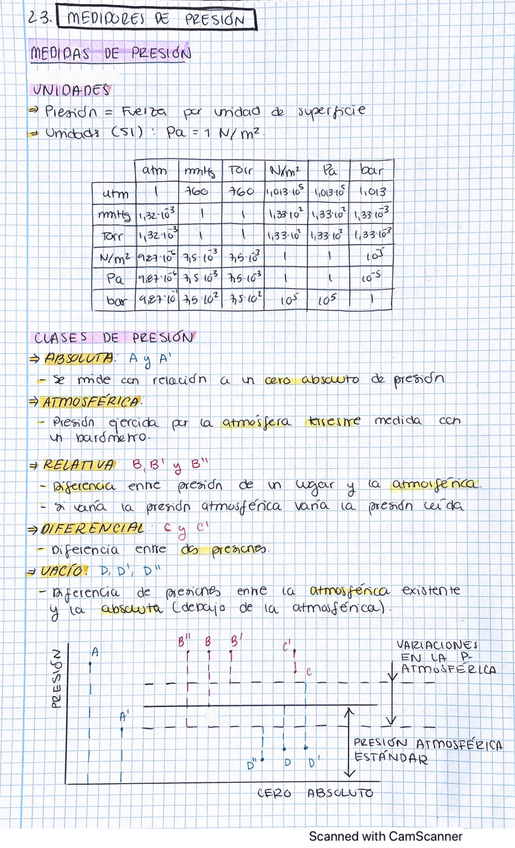 2.3. MEDIDORES DE PRESIÓN
MEDIDAS DE PRESIÓN
UNIDADES
⇒ Presión = Fuerza por unidad de superficie
⇒ Unidads (SI) : Pa = 1 N/m²
atm mmHg Torr N/m² Pa bar
atm 1 760 760 1,013·10⁵ 1,013·10⁵ 1,013
mmHg 1,32·10⁻³ 1 1 1,33·10² 1,33·10² 1,33·10⁻³
Torr 1,32·10⁻³ 1 1 1,33·10² 1,33·10² 1,33·10⁻³
N/m² 9,87·10⁻⁶ 7,5·10⁻³ 7,5·10⁻³ 1 1 10⁻⁵
Pa 9,87·10⁻⁶ 7,5·10⁻³ 7,5·10⁻³ 1 1 10⁻⁵
bar 9,87·10⁻¹ 7,5·10² 7,5·10² 10⁵ 10⁵ 1
CLASES DE PRESIÓN
⇒ ABSOLUTA: A y A'
- Se mide con relación a un cero absoluto de presión
⇒ ATMOSFÉRICA:
- Presión ejercida por la atmósfera terrestre medida con
un barómetro.
⇒ RELATIVA B, B' y B''
- Diferencia entre presión de un lugar y la atmosférica.
- si varía la presión atmosférica varía la presión leída
⇒ DIFERENCIAL: C y C'
- Diferencia entre dos presiones.
⇒ VACÍO: D, D', D''
- Diferencia de presiones entre la atmosférica existente
y la absoluta (debajo de la atmosférica).
PRESIÓN
A
B'' B B'
C'
C
A'
D'' D D'
VARIACIONES
EN LA P.
ATMOSFÉRICA
PRESIÓN ATMOSFÉRICA
ESTÁNDAR
CERO ABSOLUTO
Scanned with CamScanner